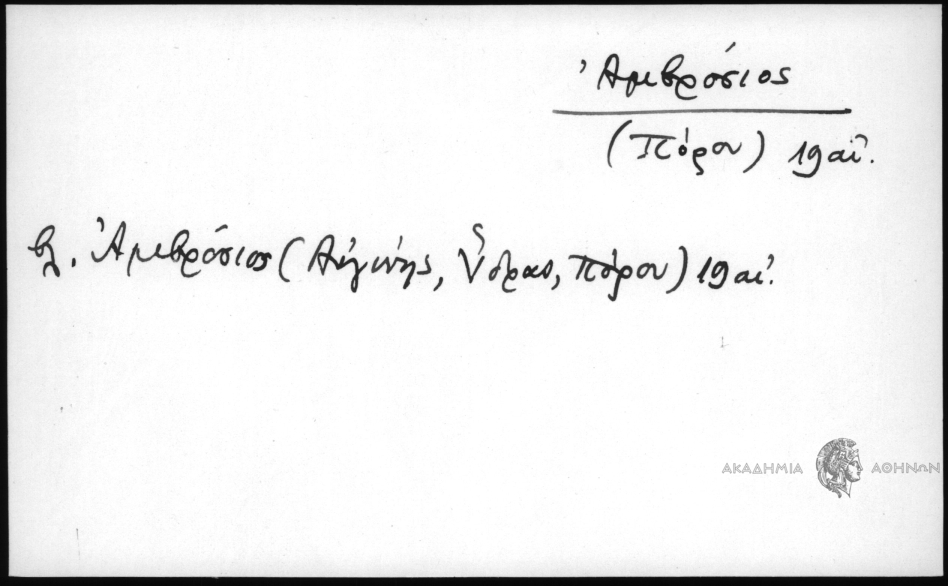 Ἀμβρόσιος
(Πόρου) 19 αἰ.
βλ. Ἀμβρόσιος (Αἰγίνης, Ὕδρας, Πόρου) 19 αἰ.
ΑΚΑΔΗΜΙΑ ΑΘΗΝΩΝ